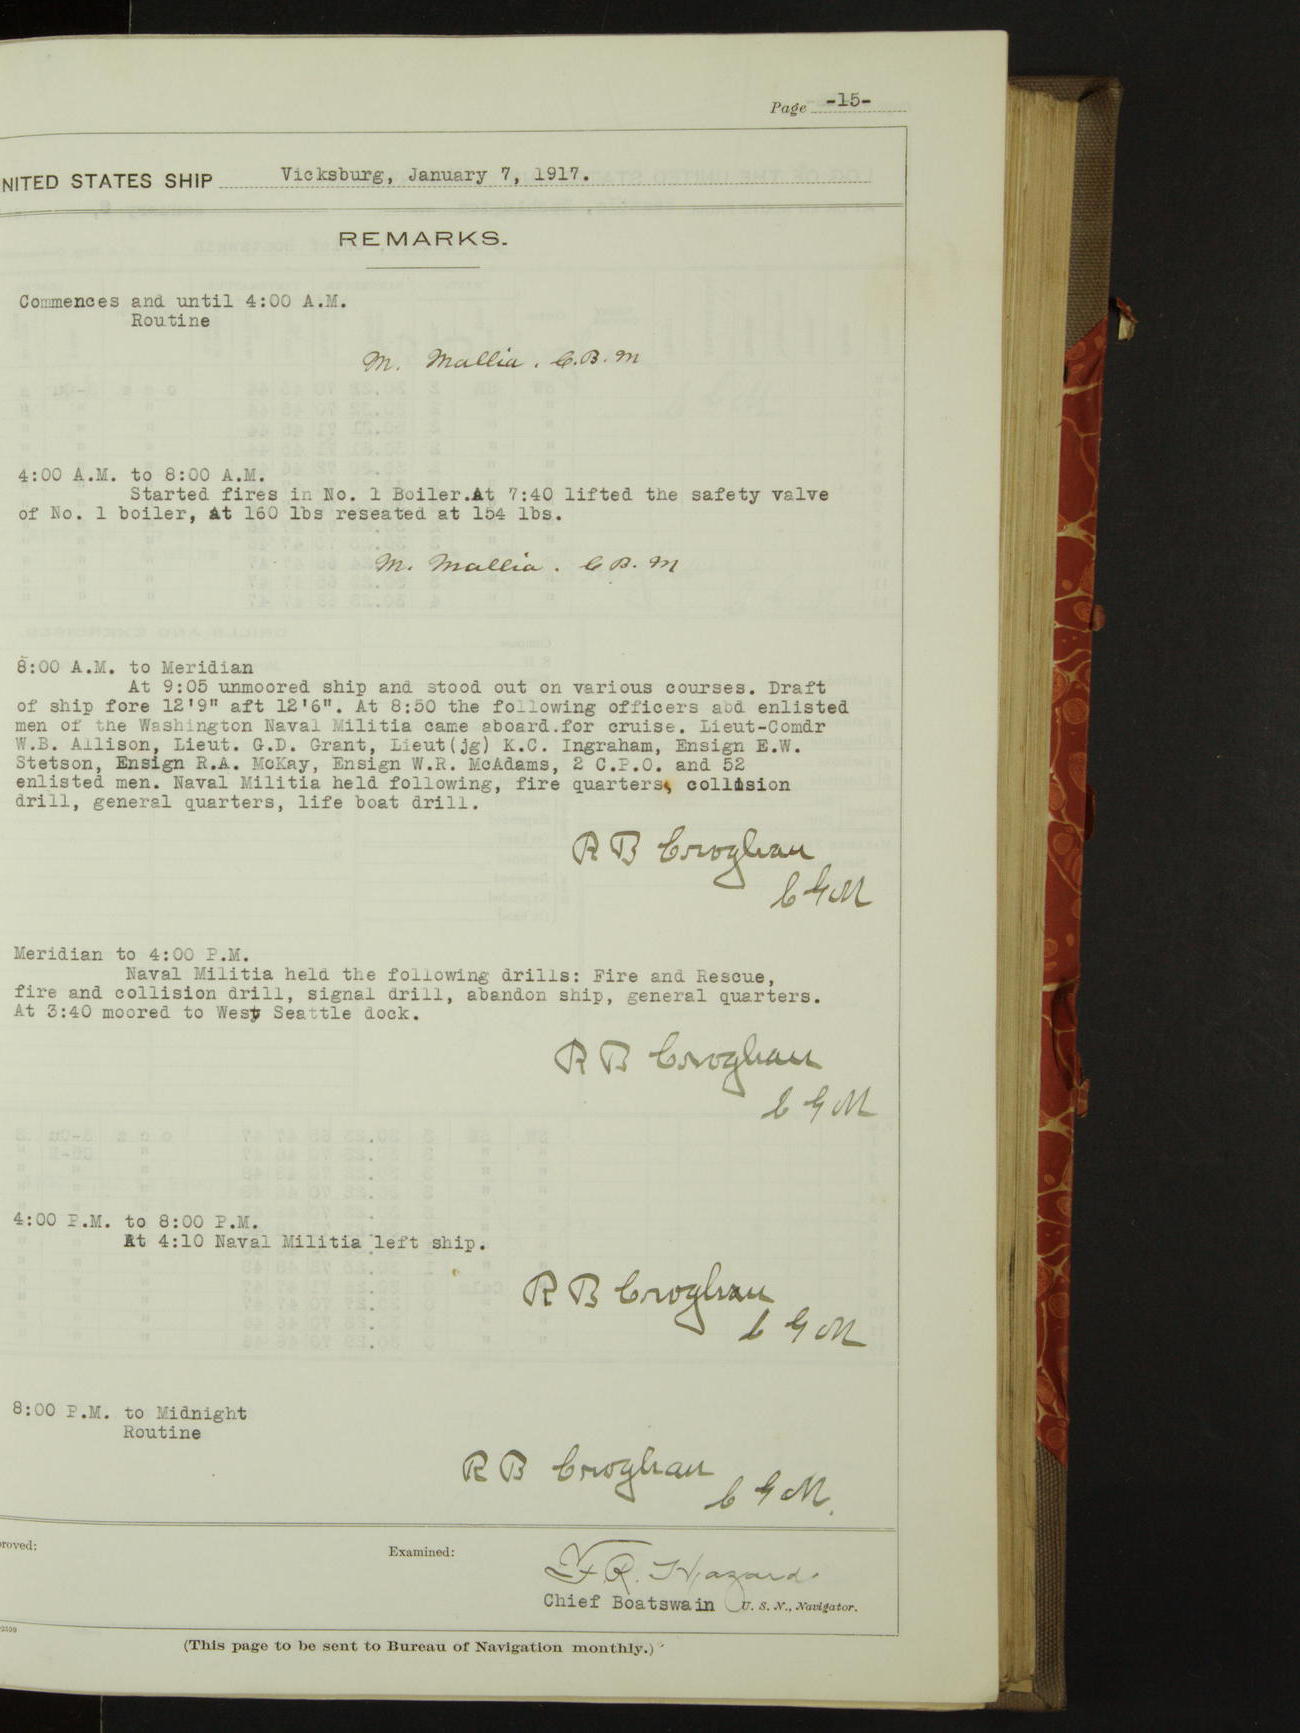 Page -15-
NITED STATES SHIP Vicksburg, January 7, 1917.
REMARKS.
Commences and until 4:00 A.M.
Routine
M. Mallia. C.B.M
4:00 A.M. to 8:00 A.M.
Started fires in No. 1 Boiler.At 7:40 lifted the safety valve
of No. 1 boiler, At 160 lbs reseated at 154 lbs.
M. Mallia. C B. M
8:00 A.M. to Meridian
At 9:05 unmoored ship and stood out on various courses. Draft
of ship fore 12'9" aft 12'6". At 8:50 the following officers abd enlisted
men of the Washington Naval Militia came aboard.for cruise. Lieut-Comdr
W.B. Allison, Lieut. G.D. Grant, Lieut(jg) K.C. Ingraham, Ensign E.W.
Stetson, Ensign R.A. McKay, Ensign W.R. McAdams, 2 C.P.O. and 52
enlisted men. Naval Militia held following, fire quarters, collision
drill, general quarters, life boat drill.
R B Croghan
C G M
Meridian to 4:00 P.M.
Naval Militia held the following drills: Fire and Rescue,
fire and collision drill, signal drill, abandon ship, general quarters.
At 3:40 moored to West Seattle dock.
R B Croghan
C G M
4:00 P.M. to 8:00 P.M.
At 4:10 Naval Militia left ship.
R B Croghan
C G M
8:00 P.M. to Midnight
Routine
R B Croghan
C G M.
roved:
Examined:
F.R. Hazard
Chief Boatswain U. S. N., Navigator.
(This page to be sent to Bureau of Navigation monthly.)